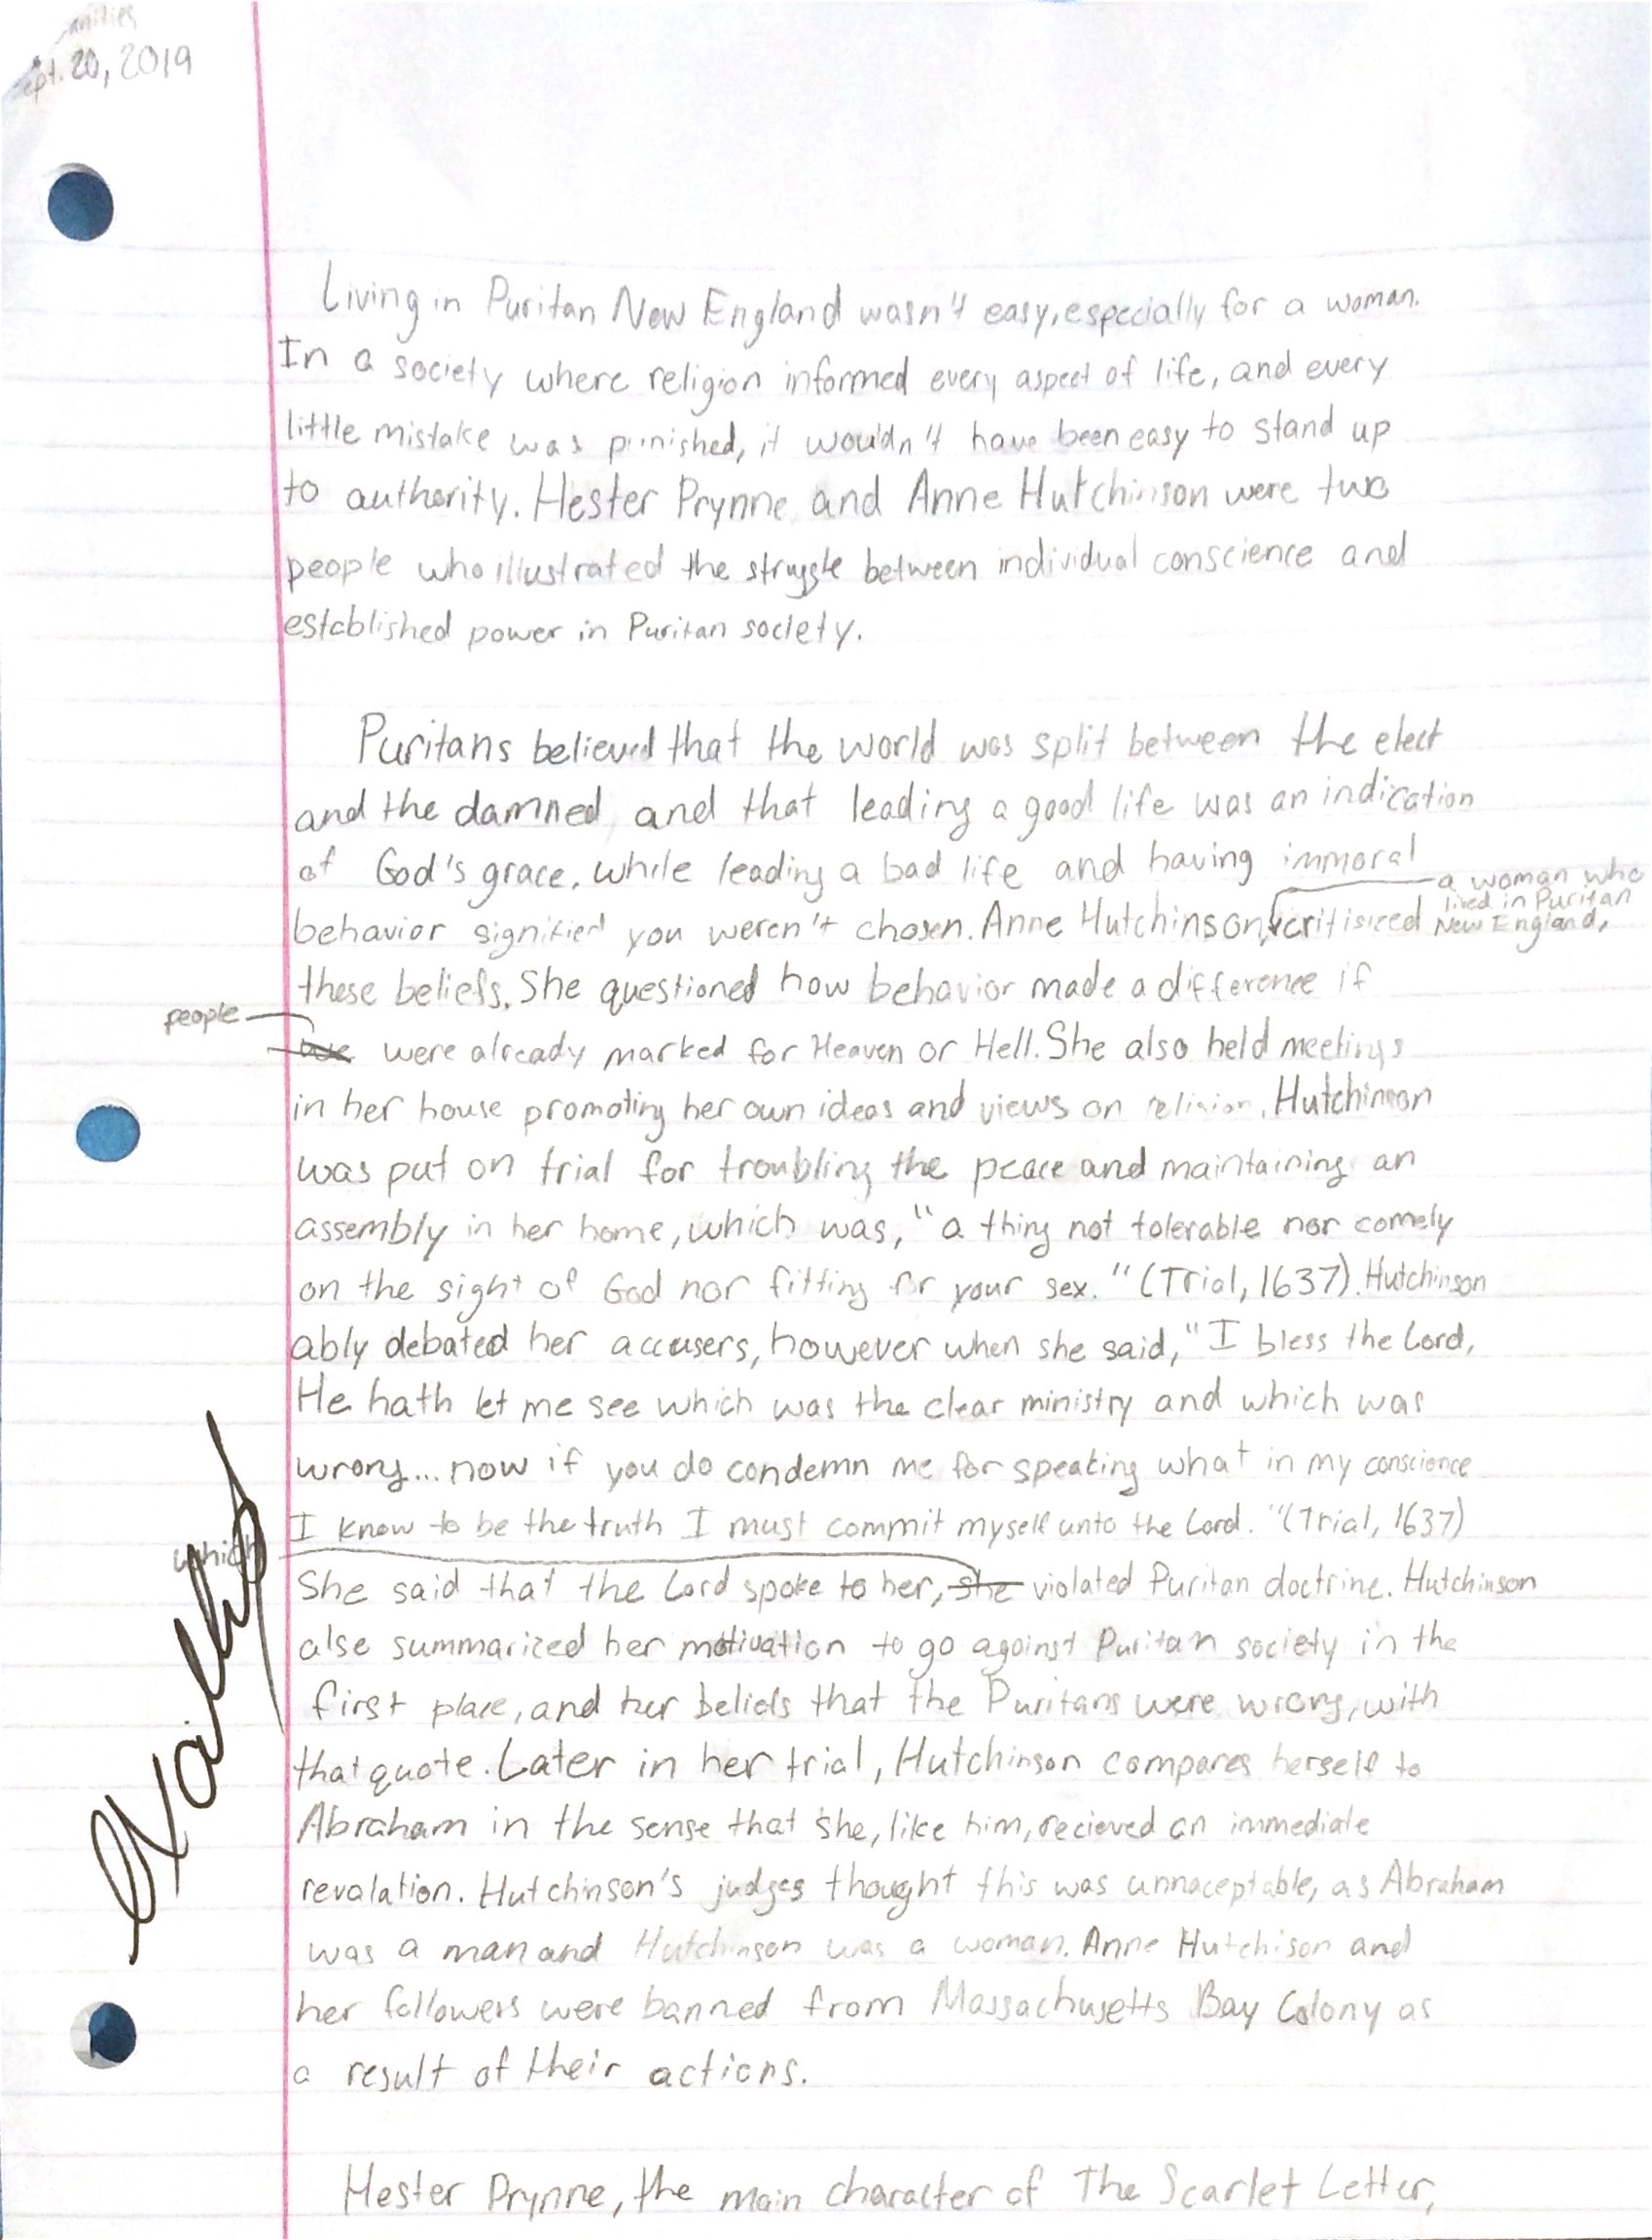 Sept. 20, 2019
Living in Puritan New England wasn't easy, especially for a woman.
In a society where religion informed every aspect of life, and every
little mistake was punished, it wouldn't have been easy to stand up
to authority. Hester Prynne and Anne Hutchinson were two
people who illustrated the struggle between individual conscience and
established power in Puritan society.
Puritans believed that the world was split between the elect
and the damned, and that leading a good life was an indication
of God's grace, while leading a bad life and having immoral
a woman who
lived in Puritan
New England,
behavior signified you weren't chosen. Anne Hutchinson, critisized
these beliefs. She questioned how behavior made a difference if
people
we were already marked for Heaven or Hell. She also held meetings
in her house promoting her own ideas and views on religion. Hutchinson
was put on trial for troubling the peace and maintaining an
assembly in her home, which was, "a thing not tolerable nor comely
on the sight of God nor fitting for your sex." (Trial, 1637). Hutchinson
ably debated her accusers, however when she said, "I bless the Lord,
He hath let me see which was the clear ministry and which was
wrong... now if you do condemn me for speaking what in my conscience
I know to be the truth I must commit myself unto the Lord." (Trial, 1637)
which
She said that the Lord spoke to her, she violated Puritan doctrine. Hutchinson
alse summarized her motivation to go against Puritan society in the
first place, and her beliefs that the Puritans were wrong, with
that quote. Later in her trial, Hutchinson compares herself to
Abraham in the sense that she, like him, recieved an immediate
revalation. Hutchinson's judges thought this was unnaceptable, as Abraham
was a man and Hutchinson was a woman. Anne Hutchison and
her followers were banned from Massachusetts Bay Colony as
a result of their actions.
Hester Prynne, the main character of The Scarlet Letter,